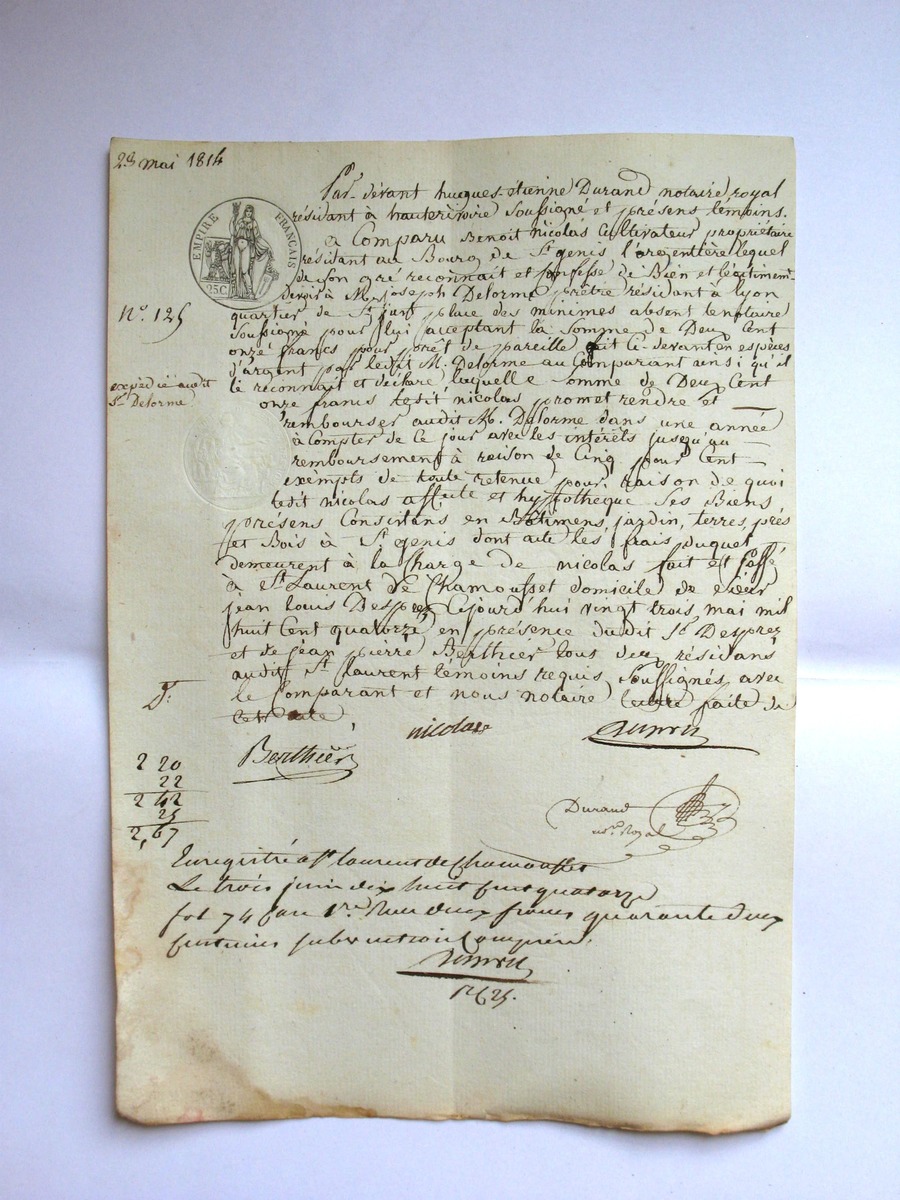 23 mai 1814
Par devant hugues-étienne Durand notaire royal
résidant à hauterivoire soussigné et présens témoins.
a Comparu Benoit nicolas Cultivateur propriétaire
EMPIRE FRANÇAIS
25C
résidant au Bourg de St genis l'argentière lequel
de son gré reconnait et Confesse de Bien et légitimemt
devoir à M. joseph Delorme prêtre résidant à lyon
No. 125
quartier de St just place des minimes absent le notaire
soussigné pour lui acceptant la somme de Deux Cent
onze francs pour prêt de pareille fait Ci-devant en espèces
d'argent par ledit M. Delorme au Comparant ainsi qu'il
expédié audit
Sr Delorme
le reconnait et déclare laquelle somme de Deux Cent
onze francs ledit nicolas promet rendre et
rembourser audit M. Delorme dans une année
à Compter de Ce jour avec les intérêts jusqu'au
remboursement à raison de Cinq pour Cent
exempts de toute retenue pour raison de quoi
ledit nicolas affecte et hypothèque ses Biens
présens Consistans en Bâtimens, jardin, terres, prés
et Bois à St genis dont acte les frais duquel
demeurent à la Charge de nicolas fait et passé
à St Laurent de Chamousset domicile de sieur
jean louis Desprez Cejourd'hui vingt trois mai mil
huit Cent quatorze en présence dudit Sr Desprez
et de jean pierre Berthier tous deux résidans
audit St laurent témoins requis soussignés avec
le Comparant et nous notaire lecture faite de
Dt.
nicolas
Berthier
2 20
22
2 42
25
2,67
Durand
nore Royal
Enregistré à St laurent de Chamousset
Le trois juin dix huit Cent quatorze
fol 74 Case 1re Reçu deux francs quarante deux
Centimes subvention Comprise.